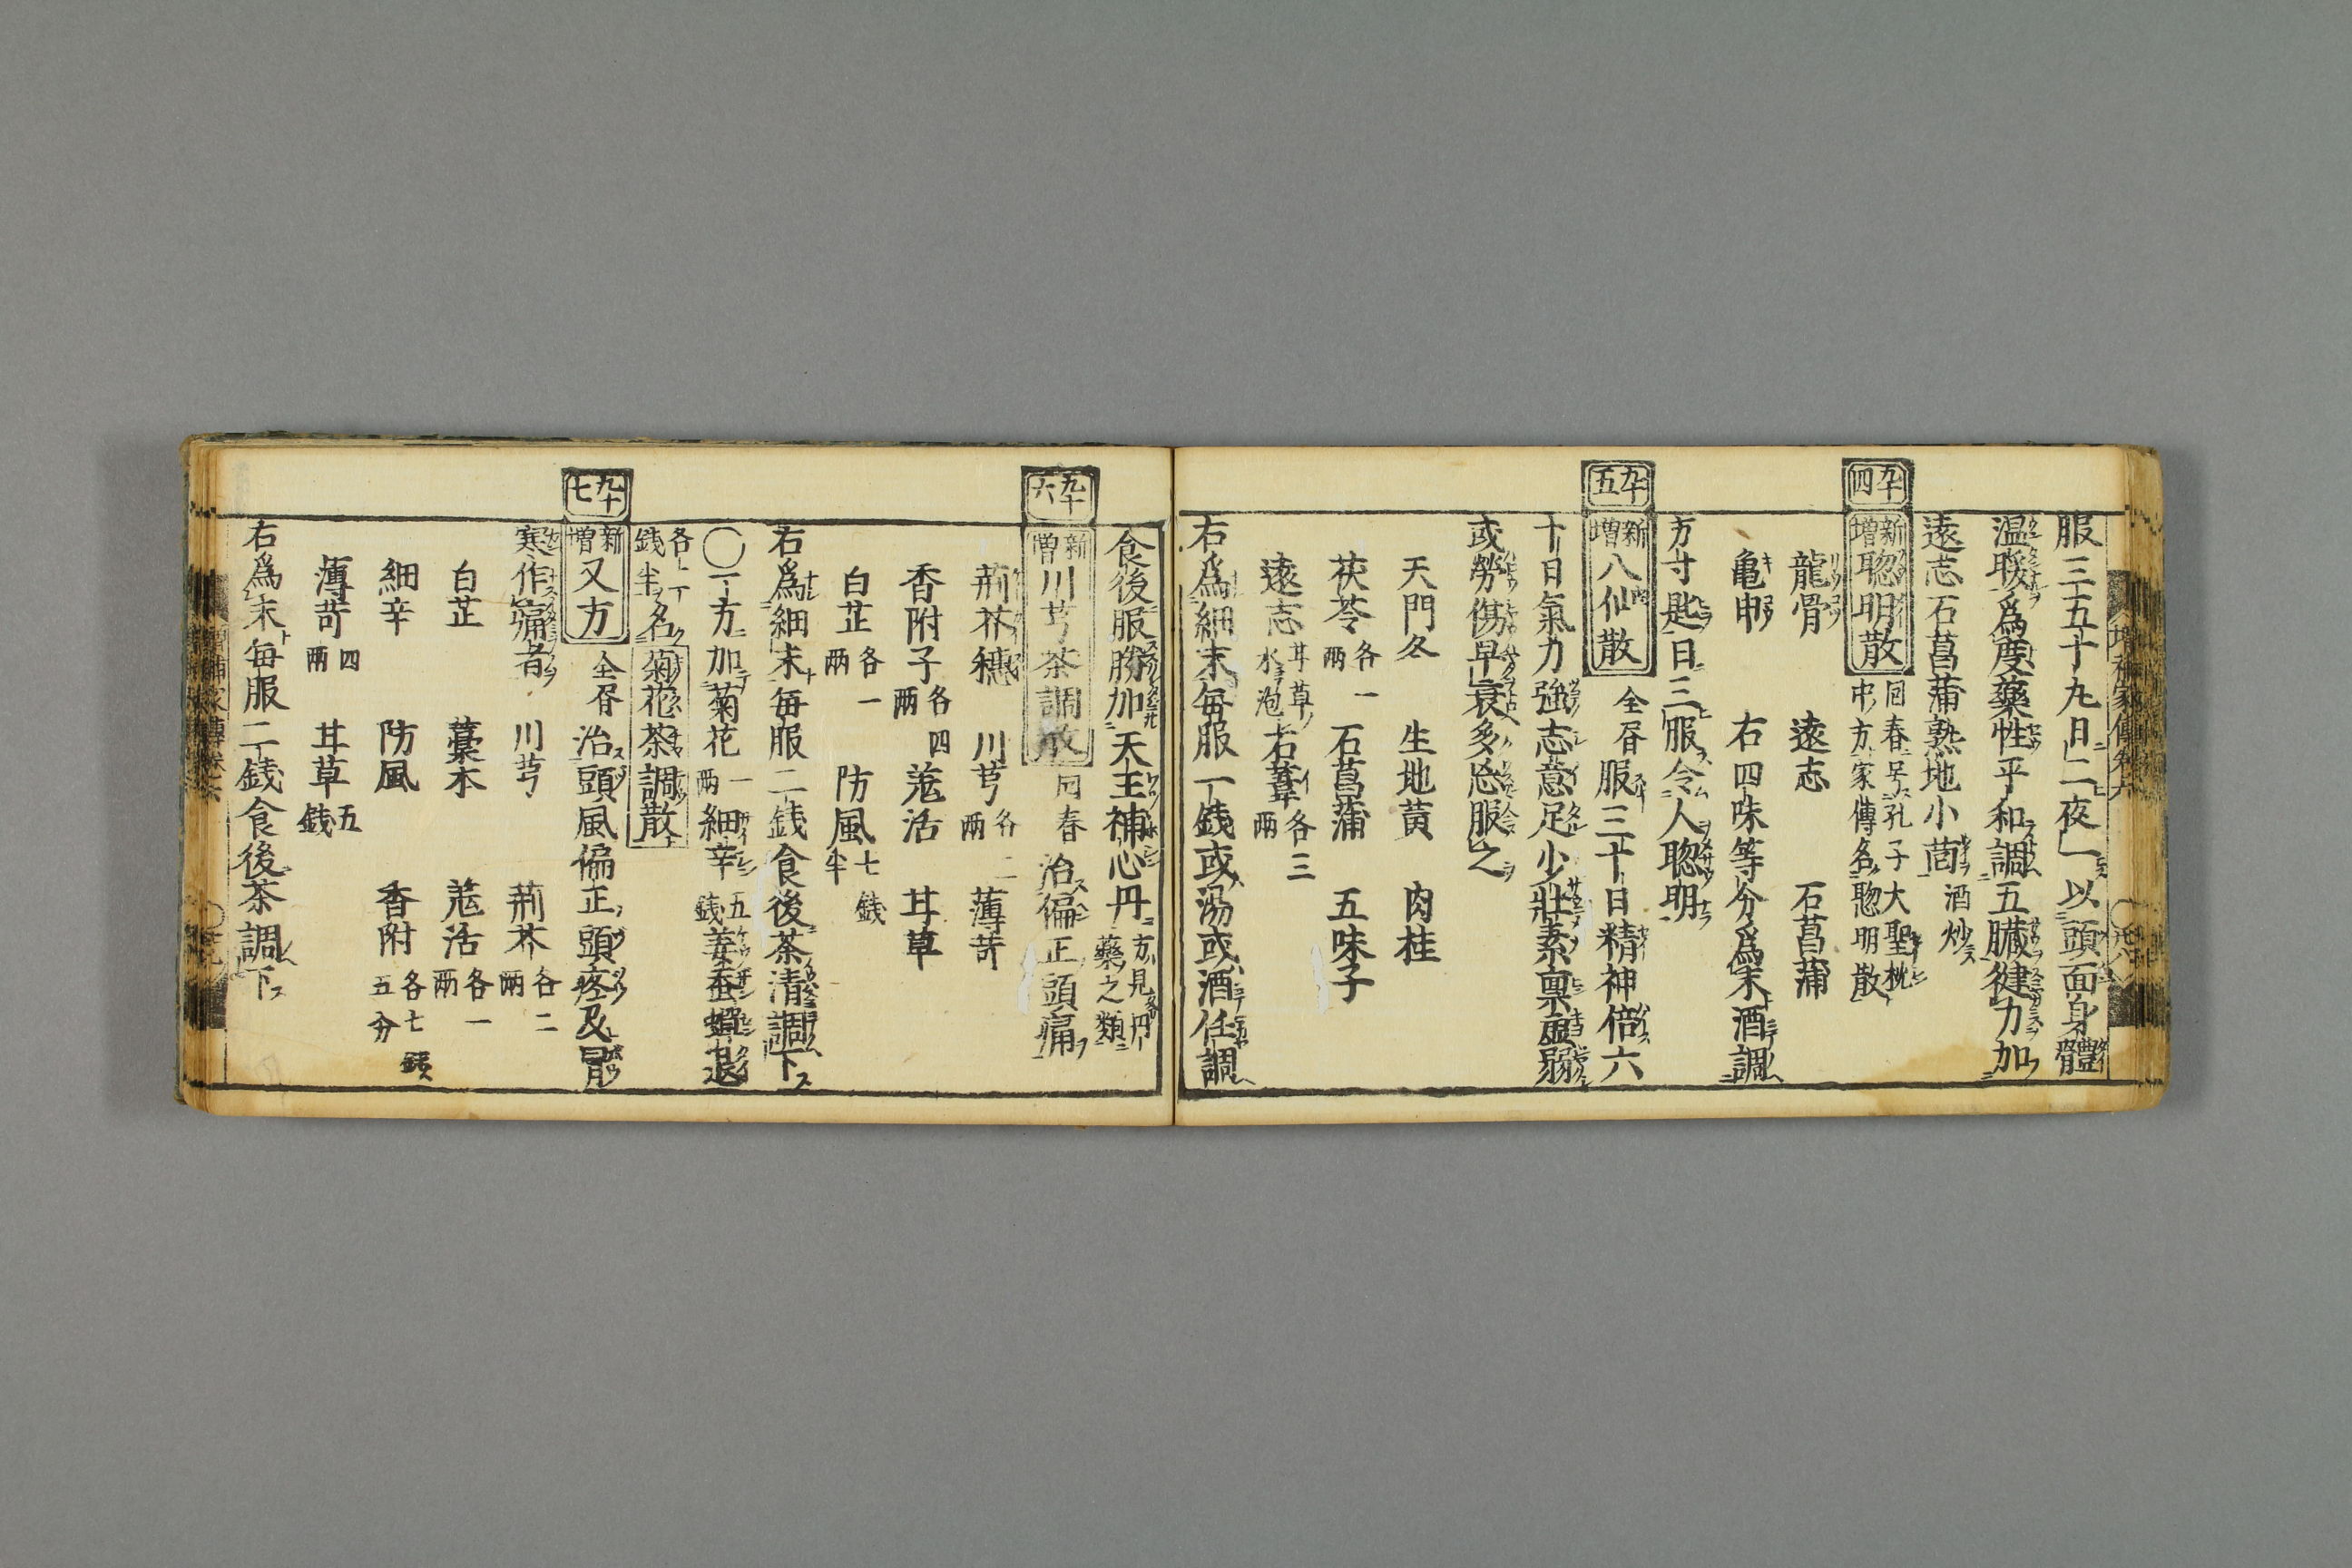 服三五十九日二夜一以頭面身體
温暖爲度藥性平和調五臓健力加
遠志石菖蒲熟地小茴酒炒
九十四
新増聰明散 回春号孔子大聖枕中方家傳名聰明散
龍骨 遠志 石菖蒲
亀甲 右四味等分爲末酒調
方寸匙日三服令人聰明
九十五
新増八仙散 仝胥 服三十日精神倍六
十日氣力強志意足少壯素禀虚弱
或勞傷早衰多忘服之
天門冬 生地黄 肉桂
茯苓各一兩 石菖蒲 五味子
遠志甘草水泡 石葦各三兩
右爲細末毎服一錢或湯或酒任調
食後服勝加天王補心丹方見丹藥之類
九十六
新増川芎茶調散 回春 治偏正頭痛
荊芥穗 川芎各二兩 薄苛
香附子各四兩 羗活 甘草
白芷各一兩 防風七錢半
右爲細末毎服二錢食後茶清調下
〇一方加菊花一兩細辛五錢姜蚕蟬退
各一錢半名菊花茶調散
九十七
新増又方 仝胥 治頭風偏正頭疼及冒
寒作痛者 川芎 荊芥各二兩
白芷 藁本 羗活各一兩
細辛 防風 香附各七錢五分
薄苛四兩 甘草五錢
右爲末毎服二錢食後茶調下